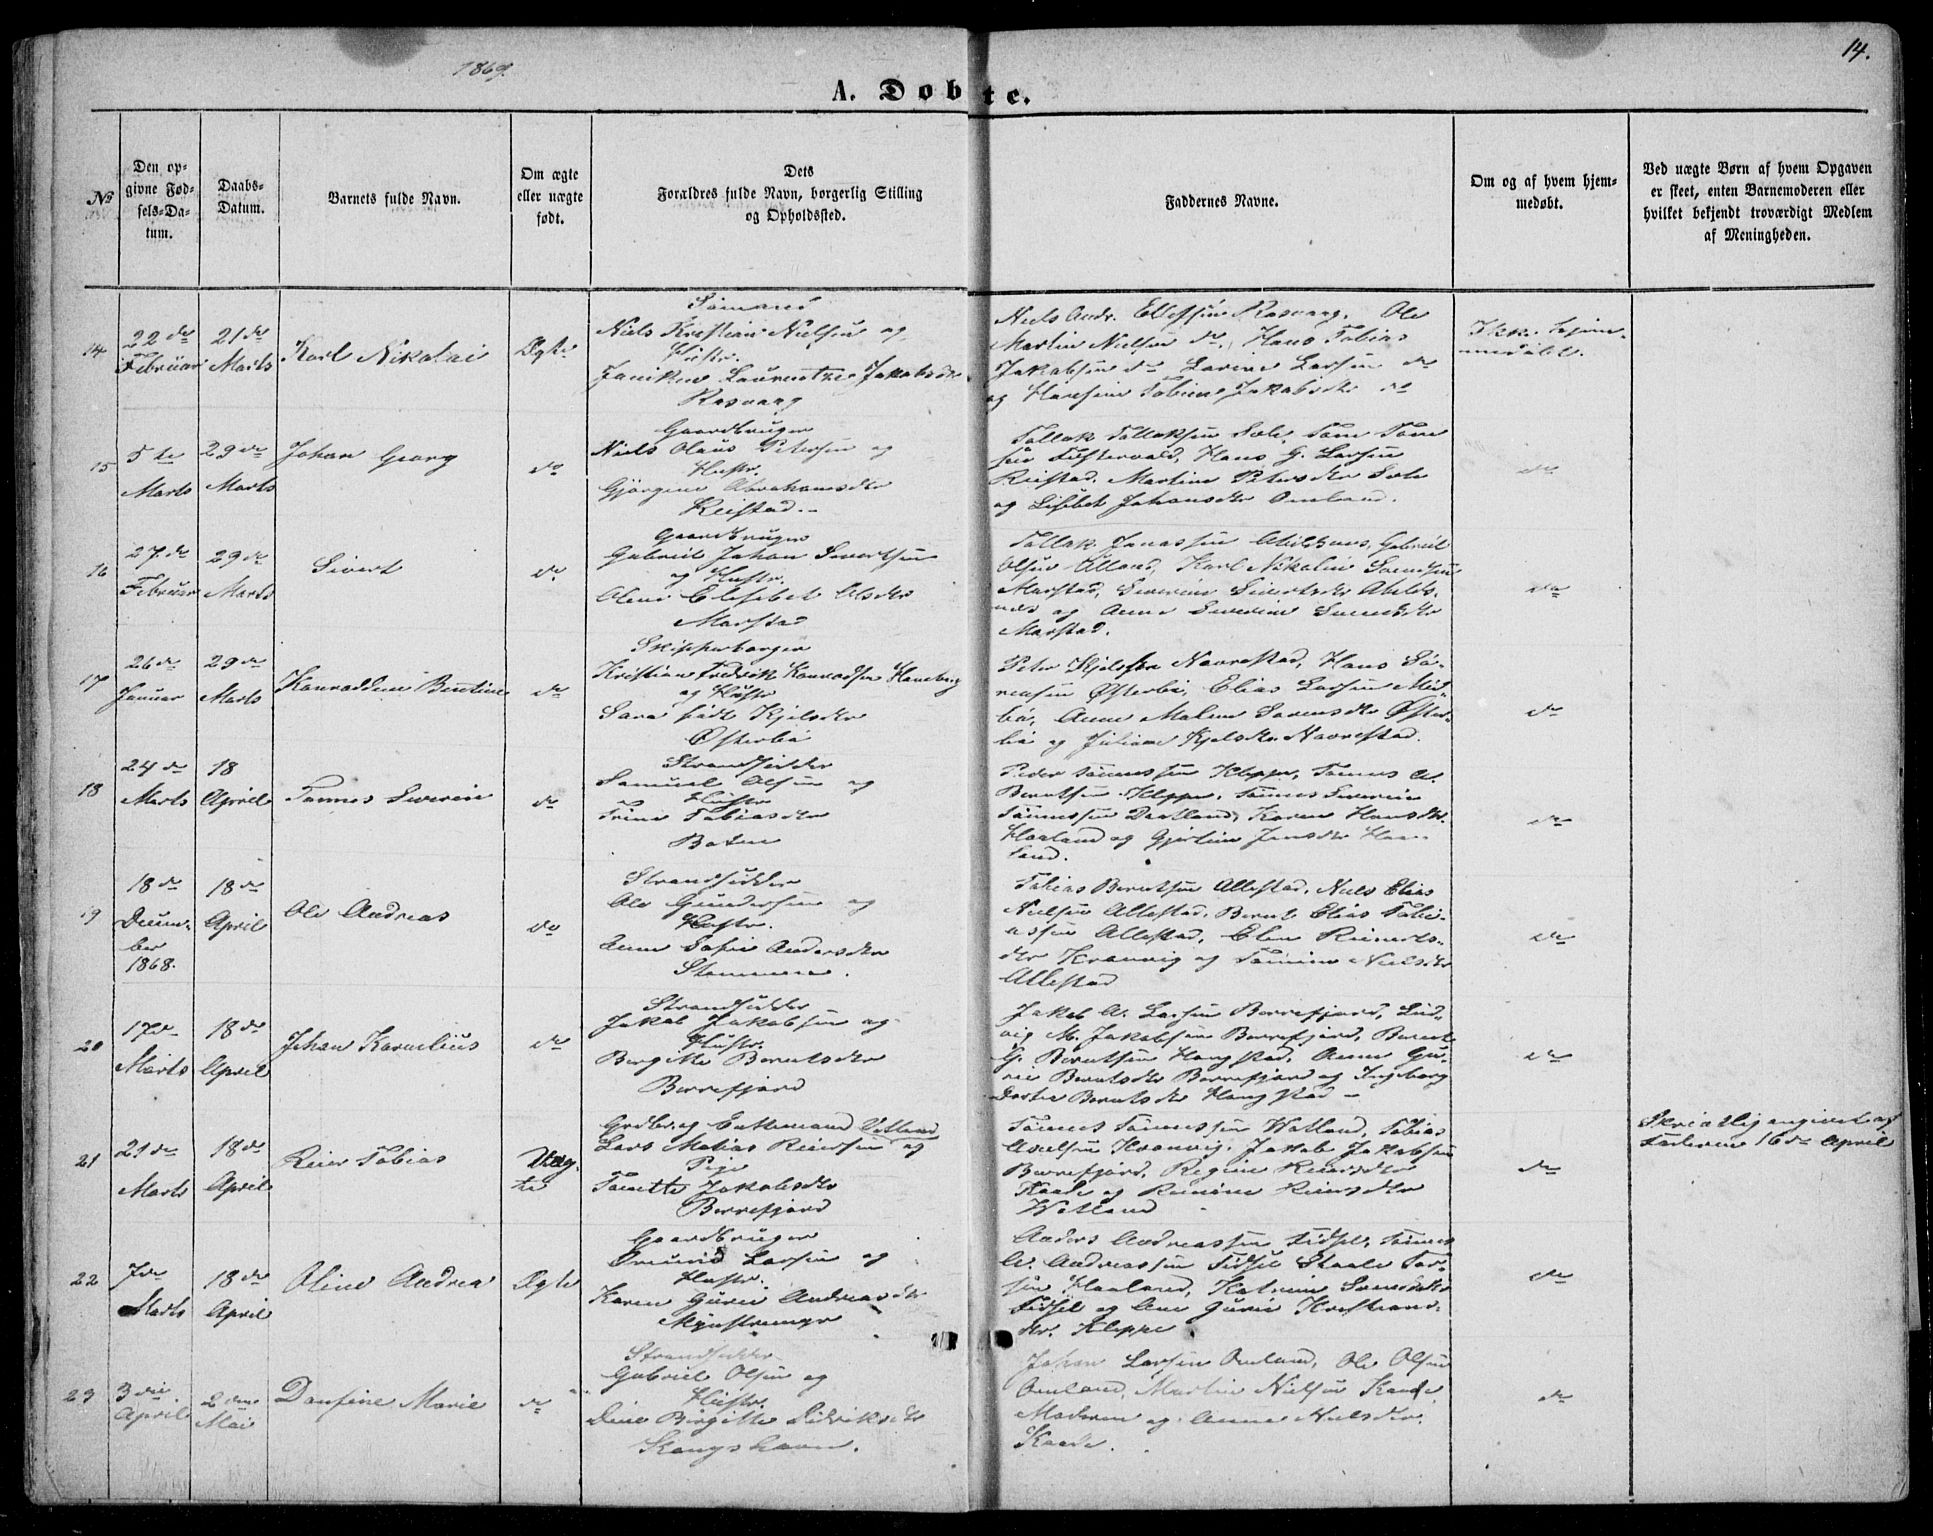 1869.
14.
A. Døbte.
№
Den opgivne Fødsels-Datum.
Daabs-Datum.
Barnets fulde Navn.
Om ægte eller uægte født.
Dets Forældres fulde Navn, borgerlig Stilling og Opholdssted.
Faddernes Navne.
Om og af hvem hjemmedøbt.
Ved uægte Børn af hvem Opgaven er skeet, enten Barnemoderen eller hvilket bekjendt troværdigt Medlem af Meningheden.
14
22de Februar
21de Marts
Karl Nikolai
Ægte
Sømand
Niels Kristian Nielsen og
Hustr.
Laurentze Jakobsdtr
Rasvaag
Niels Andr. Ellefsen Rasvaag, Ole
Martin Nielsen do, Hans Tobias
Jakobsen do Larsen do
og Tobine Jakobsdtr do
Ikke hjemmedøbt.
15
5te Marts
29de Marts
Johan Georg
do
Gaardbruger
Niels Olaus Petersen og
Hustr.
Gjørgine Abrahamsdtr
Reistad.
Tollak Tollaksen
Hans G. Larsen
Reistad, Martine Petersdtr
og Lisebet Johansdtr Omland.
do
16
27de Februar
29de Marts
Sivert
do
Gaardbruger
Gabriel Johan Sivertsen
og Hustr.
Olene Elisebet Olsdtr
Marstad
Tollak Jonassen Gabriel
Olsen Karl Nikolai Svendsen
Marstad, Severine Sivertsdtr
og Anne Severine
Marstad.
do
17
26de Januar
29de Marts
Konraddine Bentine
do
Skipperborger
Kristian Fredrik Konradsen
og Hustr
Sara født Kjelsdtr
Østerbø
Peter Kjelsen Navrestad, Hans Sørensen Østerbø, Elias Larsen
Anne Malene Sørensdtr Østerbø og Juliane Kjelsdtr Navrestad.
do
18
24de Marts
18 April
Tønnes Severin
do
Strandsidder
Samuel Olsen og
Hustr
Trine Tobiasdtr
Peder Tønnessen Kleppe, Tønnes A.
Berntsen Kleppe, Tønnes Severin
Tønnessen Karen Hansdtr
Haaland og Jensdtr Haaland.
do
19
18de December 1868.
18de April
Ole Andreas
do
Strandsidder
Ole Gundersen og
Hustr.
Anne Sofie Andersdtr
Stemmen.
Tobias Berntsen Allestad, Niels Elias
Nielsen Allestad, Bernt Elias Tobiassen Allestad, Elen Reinertsdtr og Nielsdtr
Allestad
do
20
17de Marts
18de April
Johan Kornelius
do
Strandsidder
Jakob Jakobsen og
Hustr.
Bergitte Berntsdtr
Berrefjord
Jakob A. Larsen Berrefjord, Ludvig M. Jakobsen Berrefjord, Bernt
G. Berntsen Haugstad, Anne Gurie Berntsdtr Berrefjord og Ingeborg
Dortea Berntsdtr Haugstad
do
21
21de Marts
18de April
Reier Tobias
Uægte
Grdbr. og Enkemand Vatland
Lars Matias Reiersen og
Pige
Tonette Jakobsdtr
Berrefjord
Tønnes Tønnessen Watland, Tobias
Axelsen Jakob Jakobsen
Berrefjord, Regine Reiersdtr
og Reiersdtr
Watland
do
Skriftlig angivet af
Faderen 16de April
22
7de Marts
18de April
Oline Andrea
Ægte
Gaardbruger
Omund Larsen og
Hustr.
Karen Gurie Andreasdtr
Anders Andreassen Tidsel, Tønnes
A. Andreassen Tidsel, Staale
Haaland, Katrine
Tidsel og Ane Gurie Kristiansdtr. Kleppe
do
23
3die April
2den Mai
Danfine Marie
do
Strandsidder
Gabriel Olsen og
Hustr.
Dine Birgitte Didriksdtr
Kongshavn.
Johan Larsen Omland, Ole Olsen
Omland, Martin Nielsen Kaade,
Moderen og Anne Nielsdtr.
Kaade.
do